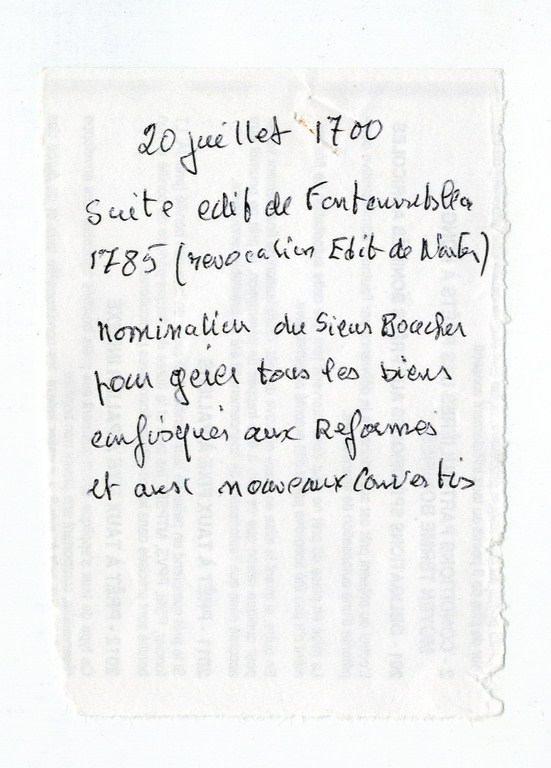 20 juillet 1700
Suite edit de Fontainebleau
1785 (revocation Edit de Nantes)
nomination du Sieur Boucher
pour gérer tous les biens
confisqués aux Reformés
et aux nouveaux Convertis